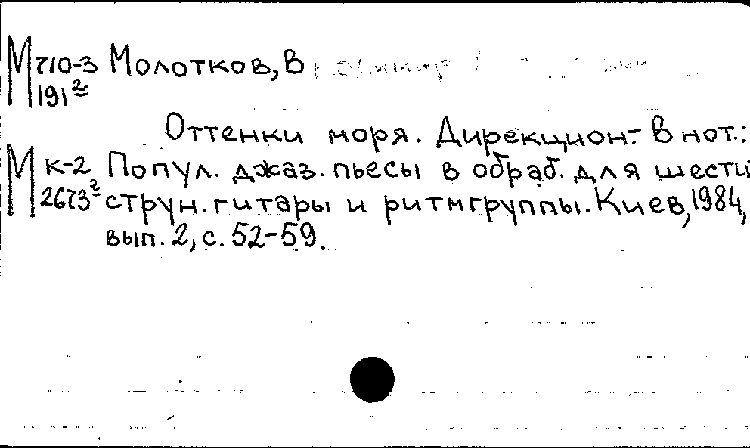 М 710-3 Молотков, В
191²
Оттенки моря. Дирекцион.- В нот.:
М К-2 Попул. джаз. пьесы в обраб. для шести
2673² струн. гитары и ритмгруппы. Киев, 1984,
вып. 2, с. 52-59.